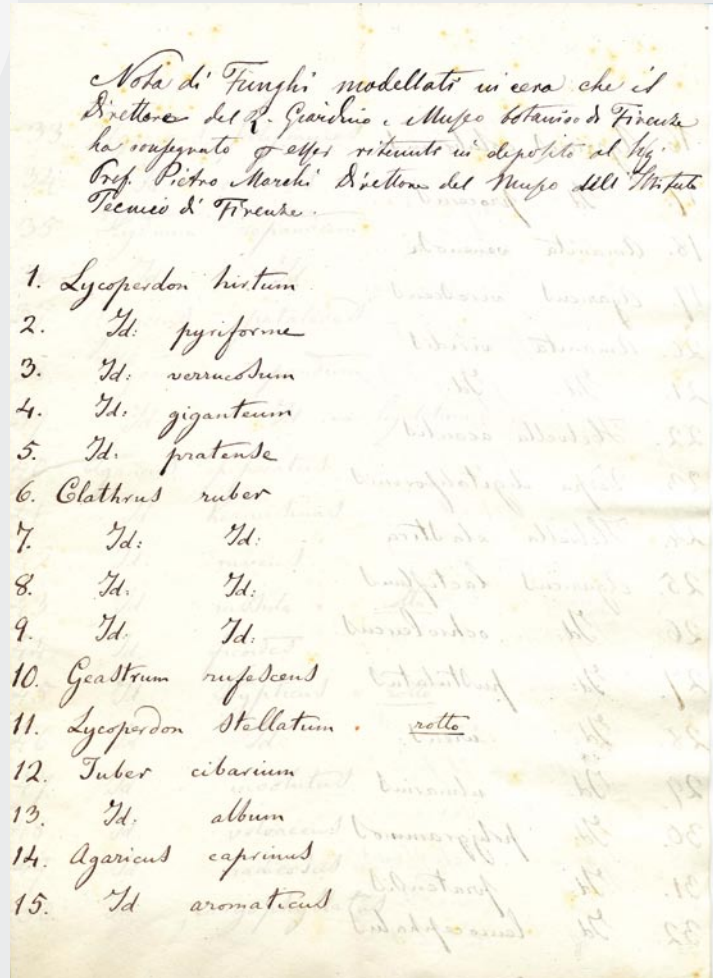 Nota di Funghi modellati in cera che il
Direttore del R. Giardino e Museo botanico di Firenze
ha consegnato esser ritenuti in deposito al Sig.
Prof. Pietro Marchi Direttore del Museo dell'Istituto
Tecnico di Firenze.
1. Lycoperdon hirtum
2. Id: pyriforme
3. Id: verrucosum
4. Id: giganteum
5. Id: pratense
6. Clathrus ruber
7. Id: Id:
8. Id: Id:
9. Id: Id:
10. Geastrum rufescens
11. Lycoperdon stellatum. rotto
12. Tuber cibarium
13. Id: album
14. Agaricus caprinus
15. Id aromaticus